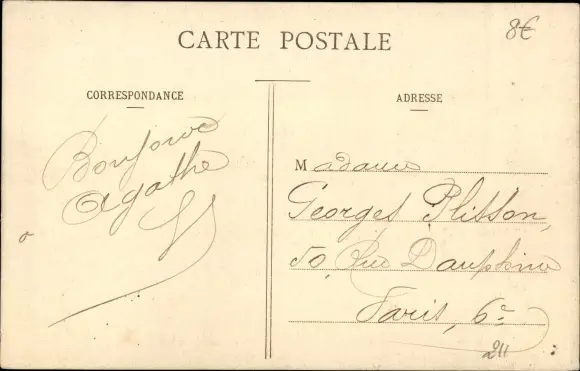 8€
CARTE POSTALE
CORRESPONDANCE
Bonjour
Agathe
ADRESSE
Madame
Georges Plisson,
50, Rue Dauphine
Paris, 6e